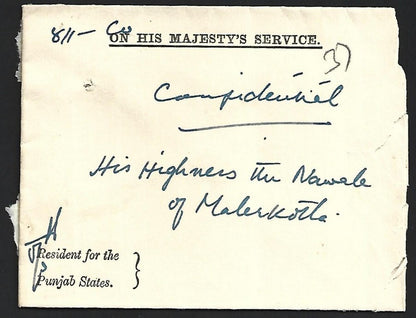 811- Co
ON HIS MAJESTY'S SERVICE.
37
Confidential
His Highness the Nawab
of Malerkotla.
Resident for the
Punjab States.